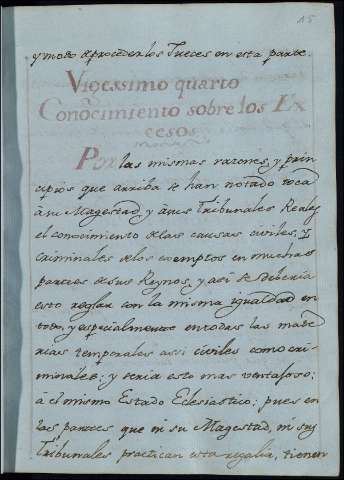 15
y modo de proceder los Jueces en esta parte.
Vigessimo quarto
Conocimiento sobre los Ex
cesos
Por las mismas razones, y prin
cipios que arriba se han notado toca
à su Magestad, y à sus Tribunales Reales
el conocimiento de las causas civiles, y
criminales de los exemptos en muchas
partes de sus Reynos, y asi se deberia
esto reglar con la misma igualdad en
todo, y especialmente en todas las mate
rias temporales assi civiles como cri
minales; y seria esto mas ventajoso
à el mismo Estado Eclesiastico; pues en
las partes que ni su Magestad, ni sus
Tribunales practican esta regalia, tienen